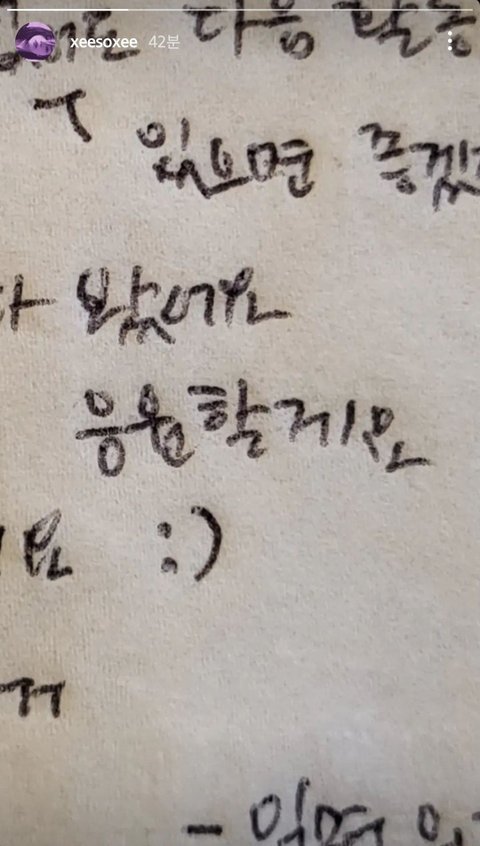 xeesoxee 42분
다음 활동
있으면 좋겠
다 봤어요
응원할게요
요 :)
-